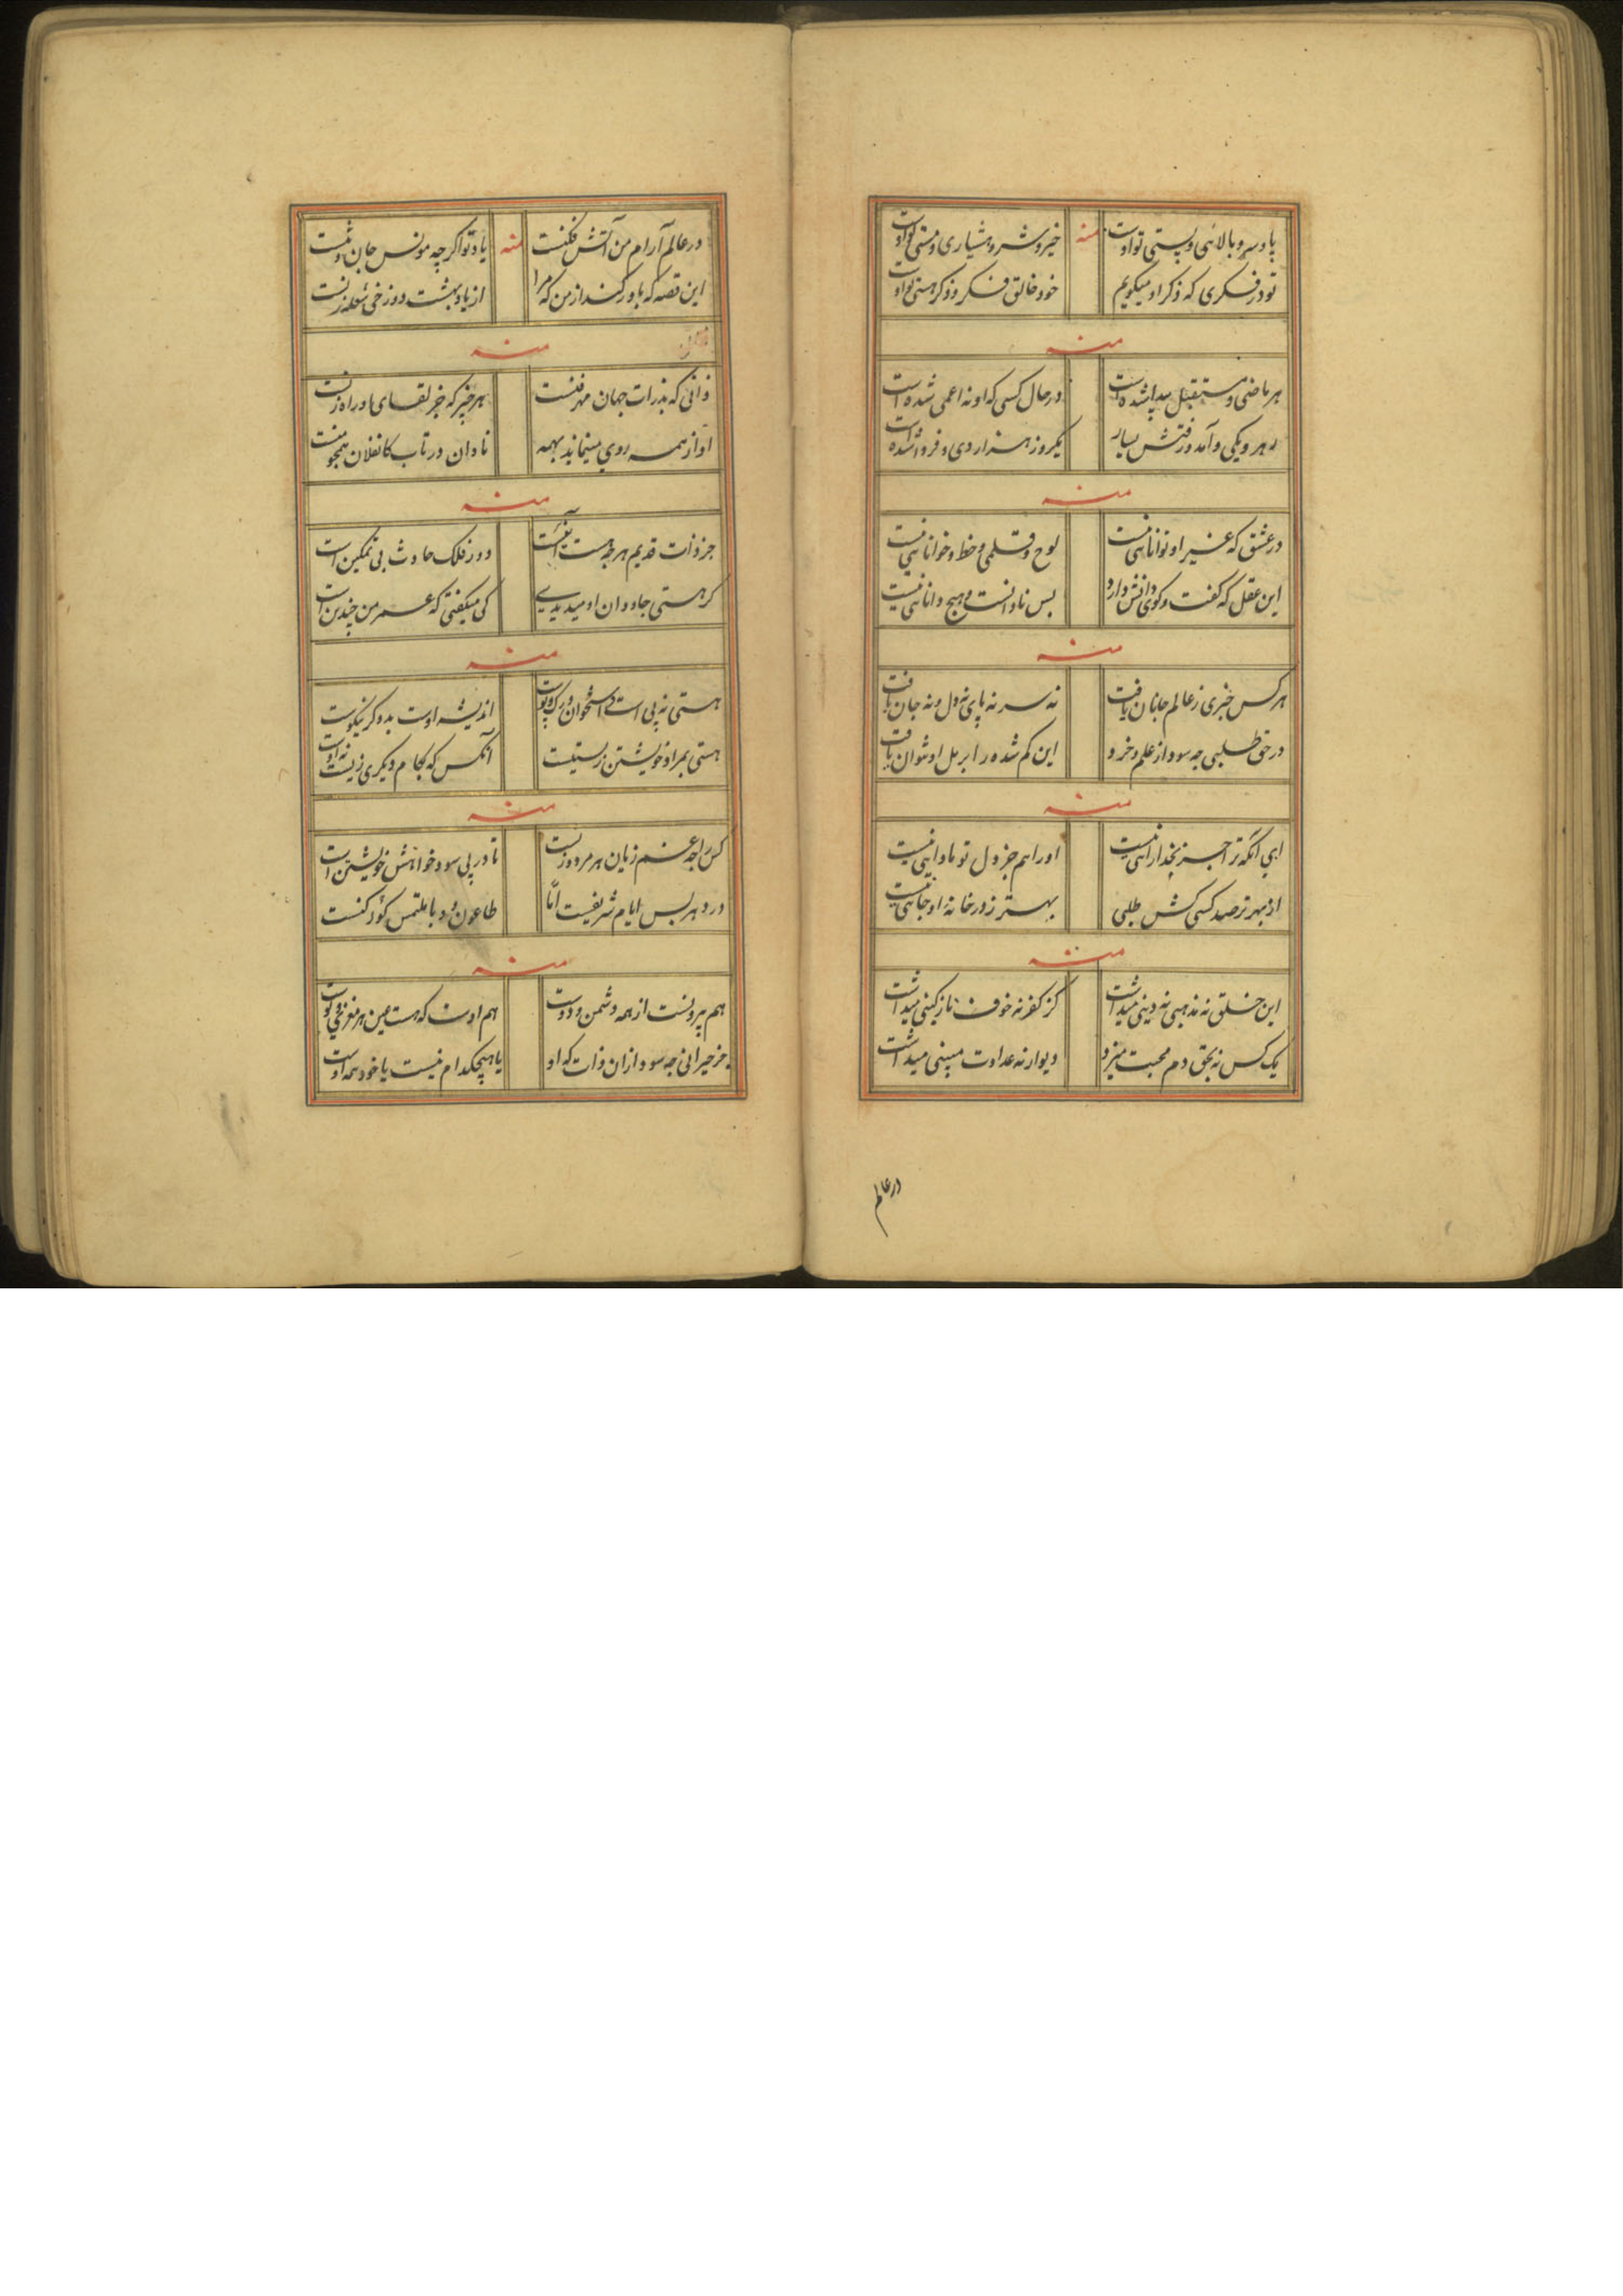 پا و سر و بالائی و پستی تو اوست منه خیر و شر و هشیاری و مستی تو اوست
تو در فکری که ذکر او میکویم خود خالق فکر و ذکر هستی تو اوست
منه
هر ماضی و مستقبل پیدا شده است در حال کسی که او نه اعمی شده است
رهرو یکی و آمد و رفتش بسیار یکروز هزار دی و فردا شده است
منه
در عشق که غیر او توانائی نیست لوح و قلمی و خط و خوانائی نیست
این عقل که کفت و کوی دانش دارد بس نادانست و هیچ دانائی نیست
منه
هر کس خبری ز عالم جانان یافت نه سر نه پای نه دل و نه جان یافت
در حق طلبی چه سود از علم و خرد این کم شده را بر مل او نتوان یافت
منه
ای آنکه ترا جز بخدا رائی نیست او را هم جز دل تو ماوائی نیست
از بهر ترصد کسی کش طلبی بهتر ز در خانه او جائی نیست
منه
این خلق نه مذهبی نه دینی میداشت کز کفر نه خوف نازکینی میداشت
یک کس نه بحق دم محبت میزد دیوار نه عداوت پسینی میداشت
در عالم
در عالم آرام من آتش فکنست منه یاد تو اکر چه مونس جان و تنست
این قصه که باور کند از من که مرا از یاد بهشت دوزخی شعله زنست
منه
ذاتی که بذرات جهان مهر فنست هر خبر که جز لقای او راه زنست
او از همه روی مینماید بهمه نادان در تاب کانفلان همچو منست
منه
جز ذات قدیم هر چه هست آئین است دور فلک حادث بی تمکین است
کر هستی جاودان او میدیدی کی میکفتی که عمر من چندین است
منه
هستی نه پی است و استخوان و رک و پوست اندیشه اوست بد و کر نیکوست
هستی بمراد خویشتن زیستنست آنکس که بکام دیکری زیست نه اوست
منه
کس را چه غم زیان هر مرد و زنست تا در پی سود خواهش خویشتن است
در دهر بس ایام شریفست اما طاعون و وبا ملتمس کورکنست
منه
هم بیرونست از همه دشمن و دوست هم اوست که هست عین هر مغزی و پوست
جز حیرانی چه سود از ان ذات که او یا هیچکدام نیست یا خود همه اوست